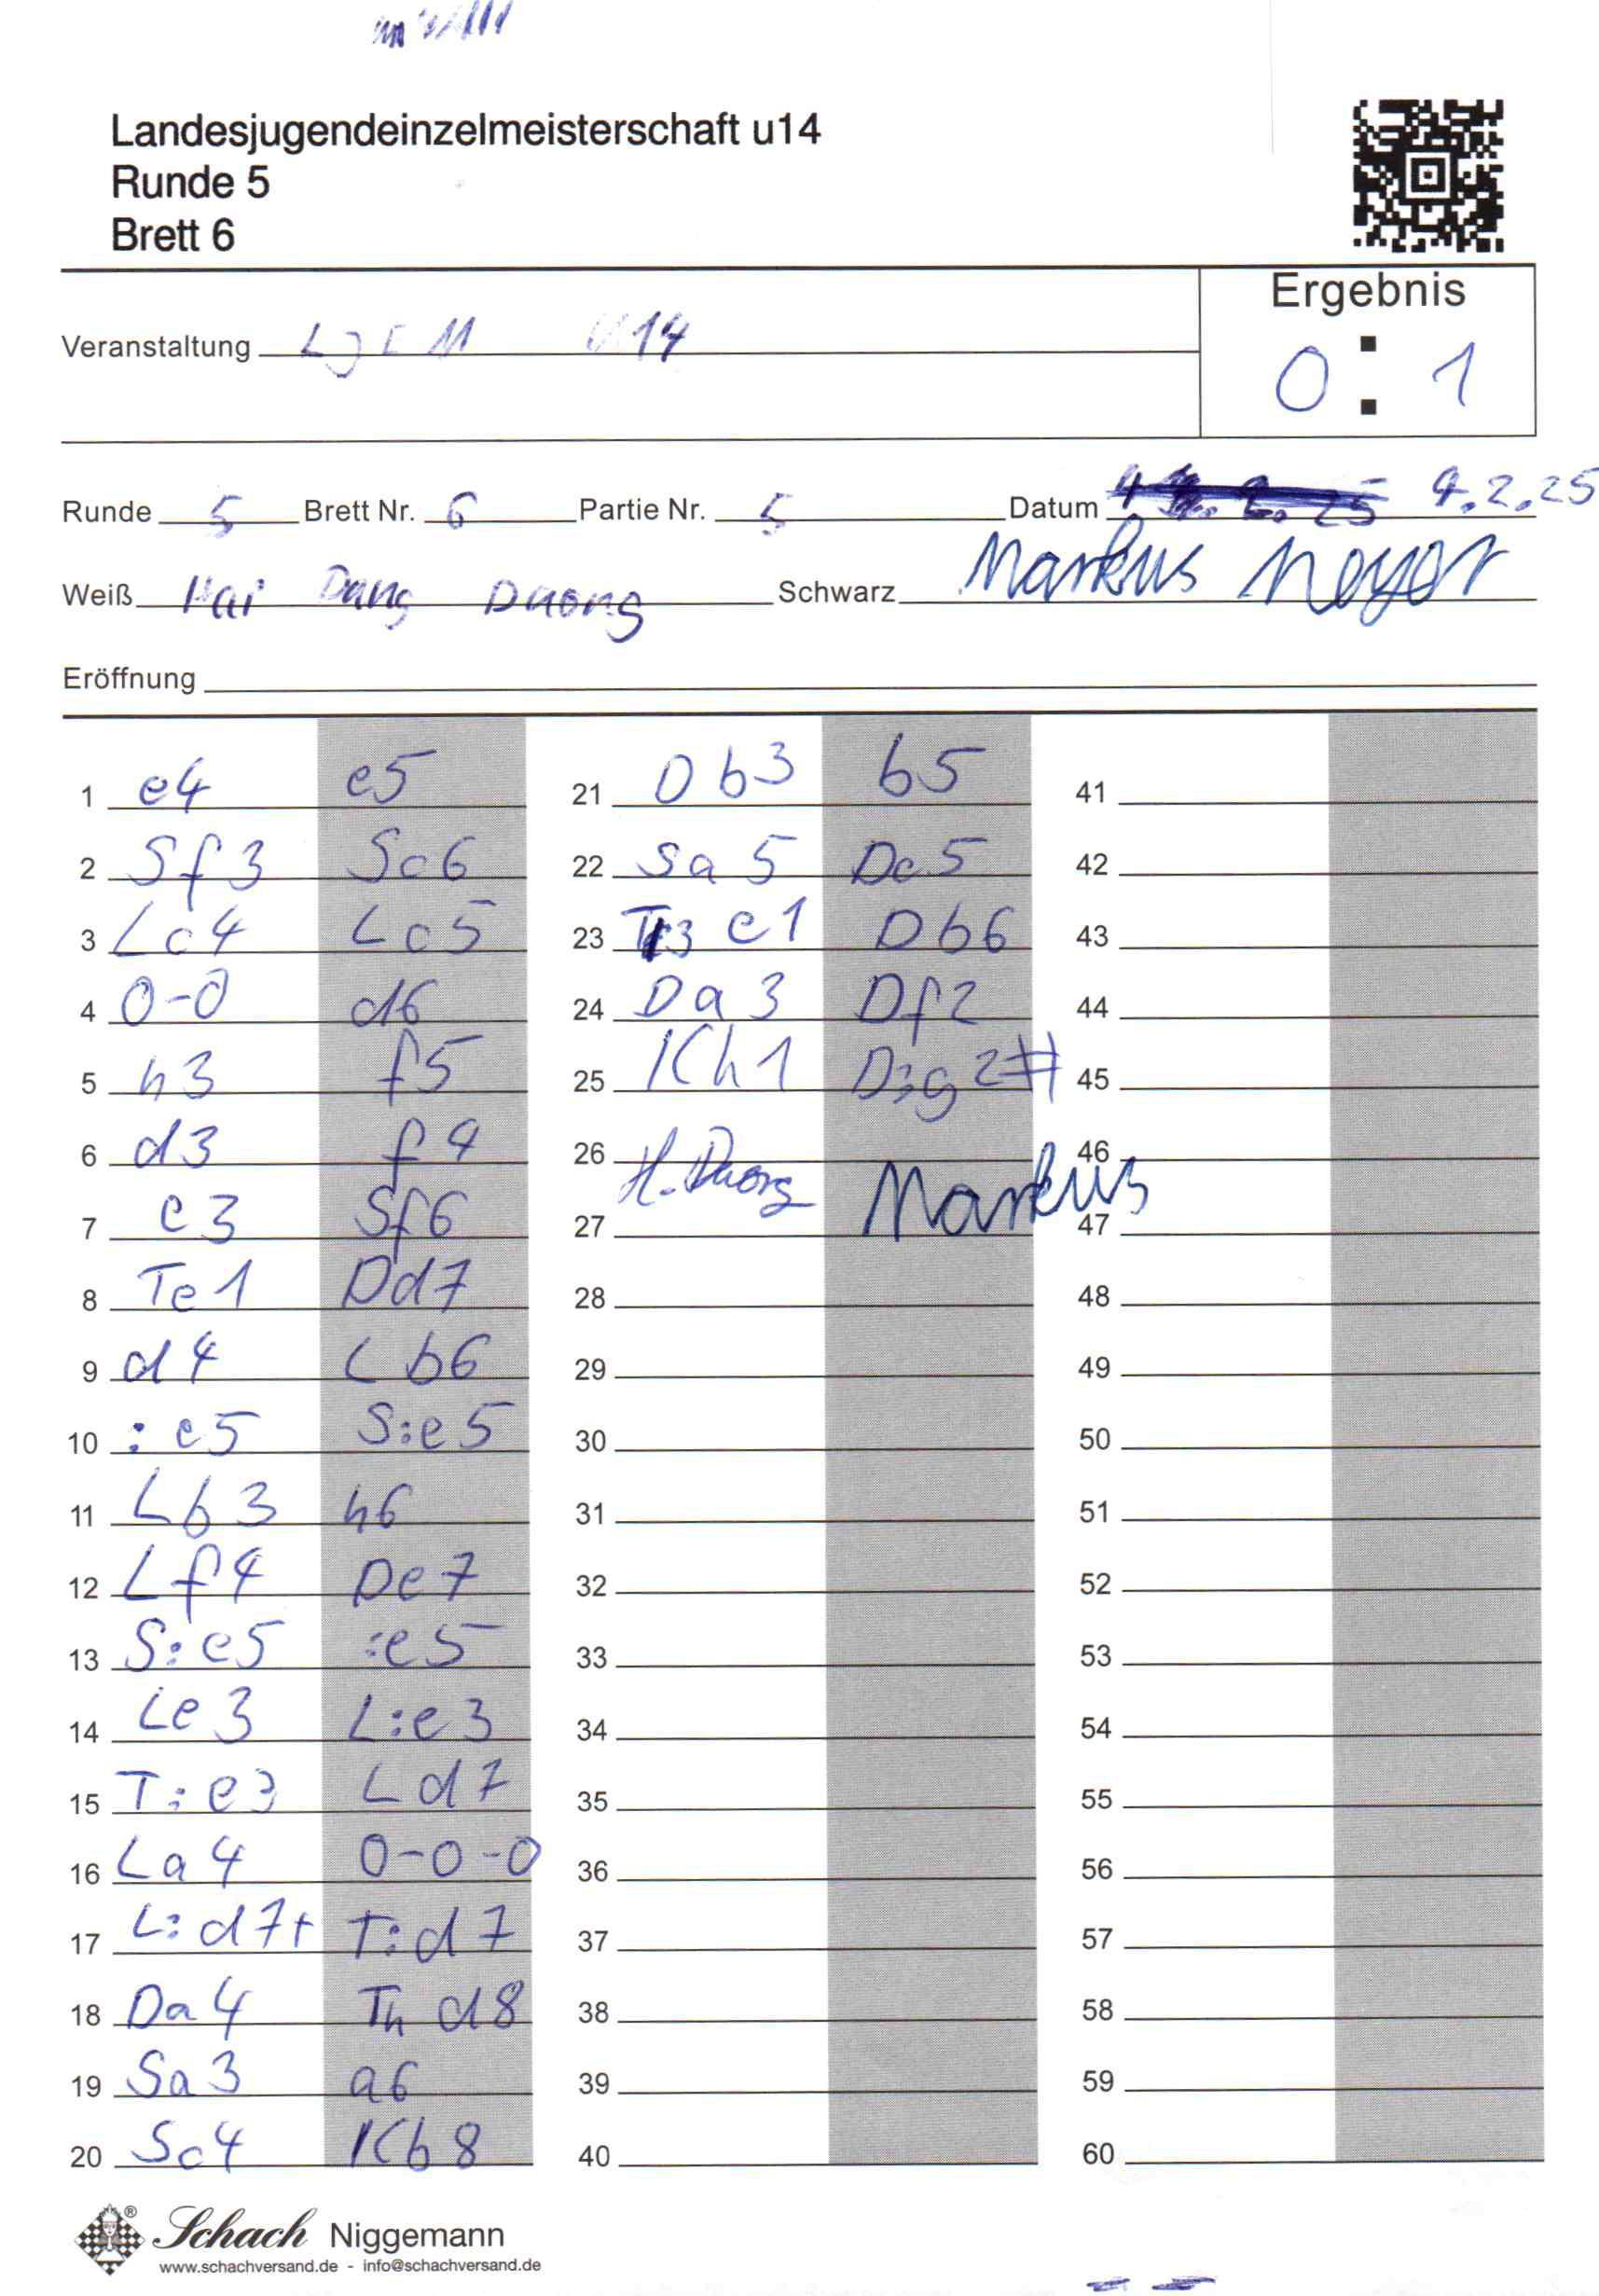 Landesjugendeinzelmeisterschaft u14
Runde 5
Brett 6
Ergebnis
0 : 1
Veranstaltung LJEM U14
Runde 5 Brett Nr. 6 Partie Nr. 5 Datum 4.2.25
Weiß Hai Dang Duong Schwarz Markus Meyer
Eröffnung
1 e4 e5
2 Sf3 Sc6
3 Lc4 Lc5
4 0-0 d6
5 h3 f5
6 d3 f4
7 c3 Sf6
8 Te1 Dd7
9 d4 Lb6
10 :e5 S:e5
11 Lb3 h6
12 Lf4 De7
13 S:e5 :e5
14 Le3 L:e3
15 T:e3 Ld7
16 La4 0-0-0
17 L:d7+ T:d7
18 Da4 Thd8
19 Sa3 a6
20 Sc4 Kb8
21 Db3 b5
22 Sa5 Dc5
23 T3e1 Db6
24 Da3 Df2
25 Kh1 D:g2#
26 H. Duong Markus
27
28
29
30
31
32
33
34
35
36
37
38
39
40
41
42
43
44
45
46
47
48
49
50
51
52
53
54
55
56
57
58
59
60
Schach Niggemann
www.schachversand.de - info@schachversand.de